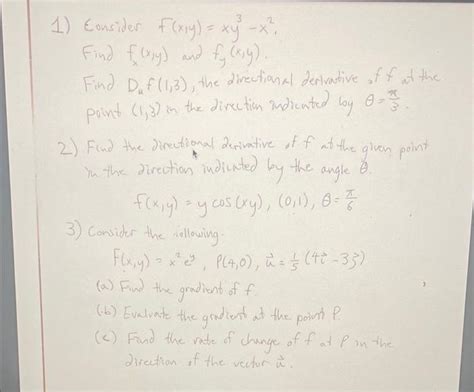 1) Consider f(x,y) = xy³ - x².
Find fₓ(x,y) and f_y(x,y).
Find Dᵤf(1,3), the directional derivative of f at the
point (1,3) in the direction indicated by θ = π/3.
2) Find the directional derivative of f at the given point
in the direction indicated by the angle θ.
f(x,y) = y cos(xy), (0,1), θ = π/6
3) Consider the following.
f(x,y) = x²eʸ, P(4,0), u⃗ = 1/5 (4i⃗ - 3j⃗)
(a) Find the gradient of f.
(b) Evaluate the gradient at the point P.
(c) Find the rate of change of f at P in the
direction of the vector u⃗.